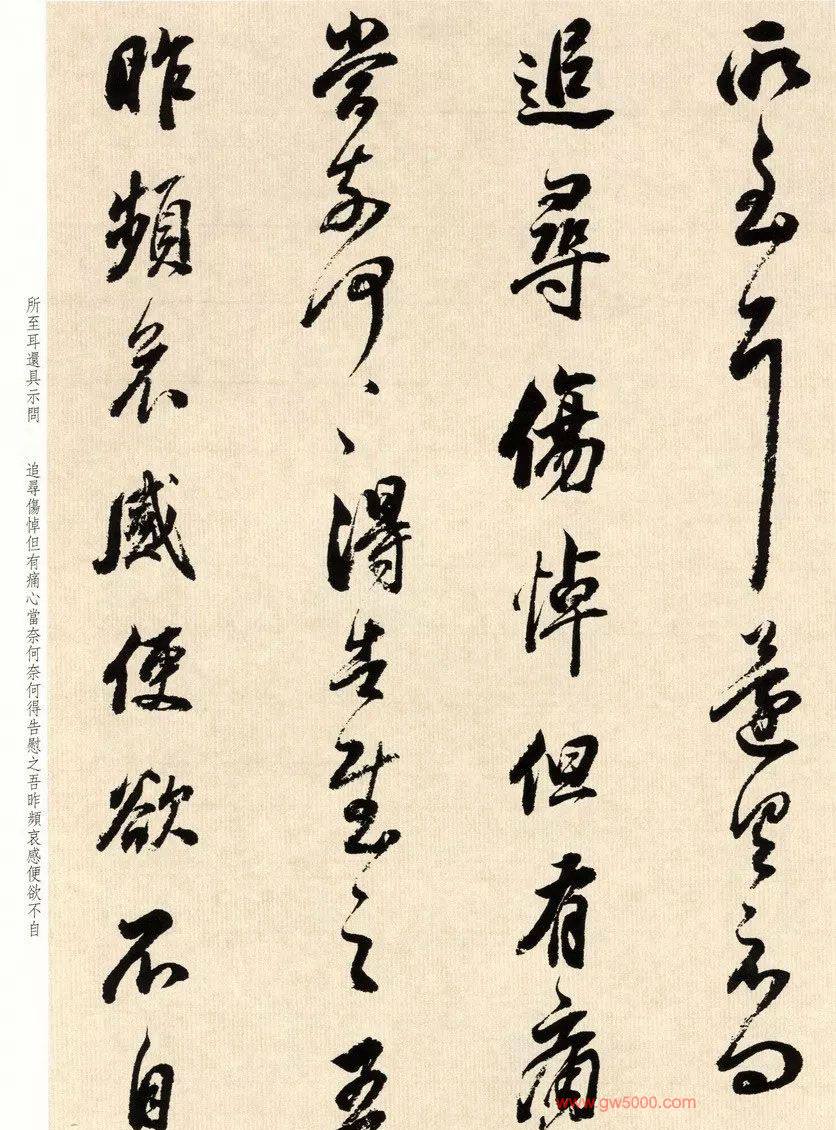 所至耳還具示問
追尋傷悼但有痛
當奈何〻得告慰之吾
昨頻哀感便欲不自
所至耳還具示問　追尋傷悼但有痛心當奈何奈何得告慰之吾昨頻哀感便欲不自
www.gw5000.com